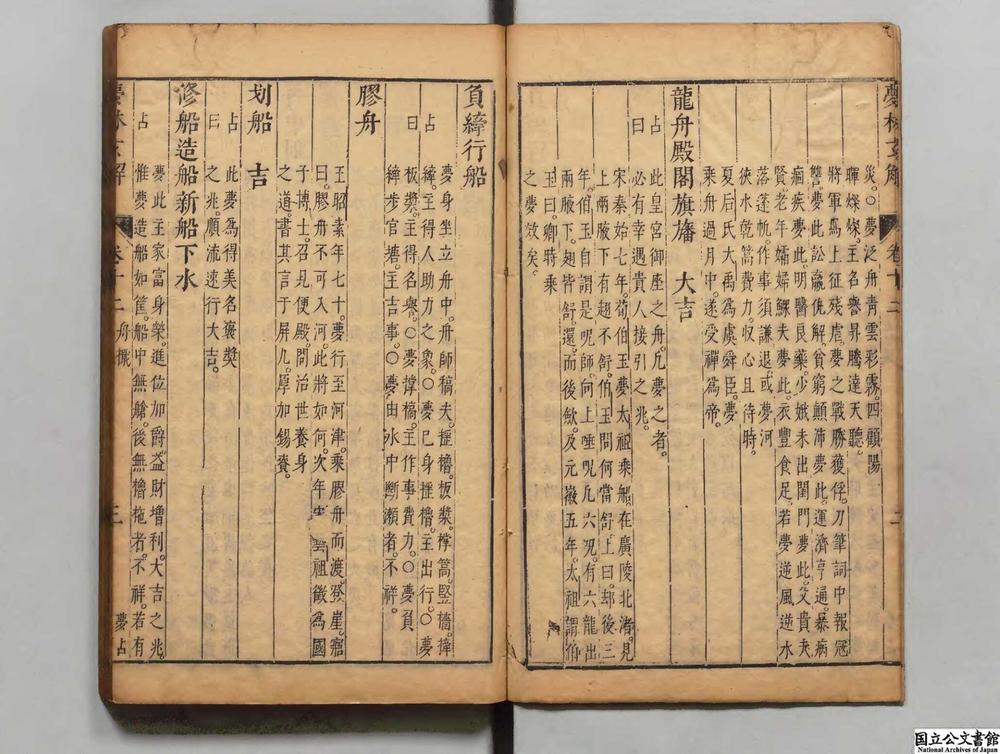 夢林玄解 卷十二 二
災。〇夢泛舟青雲彩霧。四顧陽
暉燦燦。主名譽昇騰達天聽。
將軍爲上征殘虐。夢之戰勝獲俘。刀筆詞中報冦
讐。夢此訟贏仇解。貧窮顛沛夢此。運濟亨通。暴病
痼疾夢此。明醫良藥。少娥未出閨門夢此。父貴夫
賢。老年孀婦鰥夫夢此。衣豐食足。若夢逆風逆水
落蓬帆。作事須謙退。或夢河
狹水乾篙費力。収心且待時。
夏后氏大禹爲虞舜臣。夢
乘舟過月中。遂受禪爲帝。
龍舟殿閣旗旛 大吉
占曰 此皇宮御座之舟。凡夢之者。
必有幸遇貴人接引之兆。
宋秦始七年。荀伯玉夢太祖乘船。在廣陵北渚。見
上兩腋下有翅不舒。伯玉問何當舒。上曰。却後三
年。伯玉自謂是呪師。向上唾呪。凡六呪。有六龍出
兩腋下。翅皆舒還。而後歛。及元徽五年。太祖謂伯
玉曰。卿時乘
之夢效矣。
負縴行船
占曰 夢身坐立舟中。舟師稿夫。搖櫓。板槳。撑篙。竪檣。捧
縴。主得人助力之象。〇夢已身搖櫓。主出行。〇夢
板槳。主得名譽。〇夢撑稿。主作事費力。〇夢負
縴步官塘。主吉事。〇夢由氷中斷瀨者。不祥。
膠舟
王昭素年七十。夢行至河津。乘膠舟而渡。登崖。寤
曰。膠舟不可入河。此將如何。次年 祖徵爲國
子博士。召見便殿。問治世養身
之道。書其言于屏几。厚加錫賚。
划船 吉
占曰 此夢爲得美名褒奬
之兆。順流速行大吉。
修船造船新船下水
占 夢此主家富身榮。進位加爵。益財增利。大吉之兆。
惟夢造船如筐。船中無艙。後無櫓柁者。不祥。若有
夢林玄解 卷十二 舟楫 三 夢占
国立公文書館
National Archives of Japan